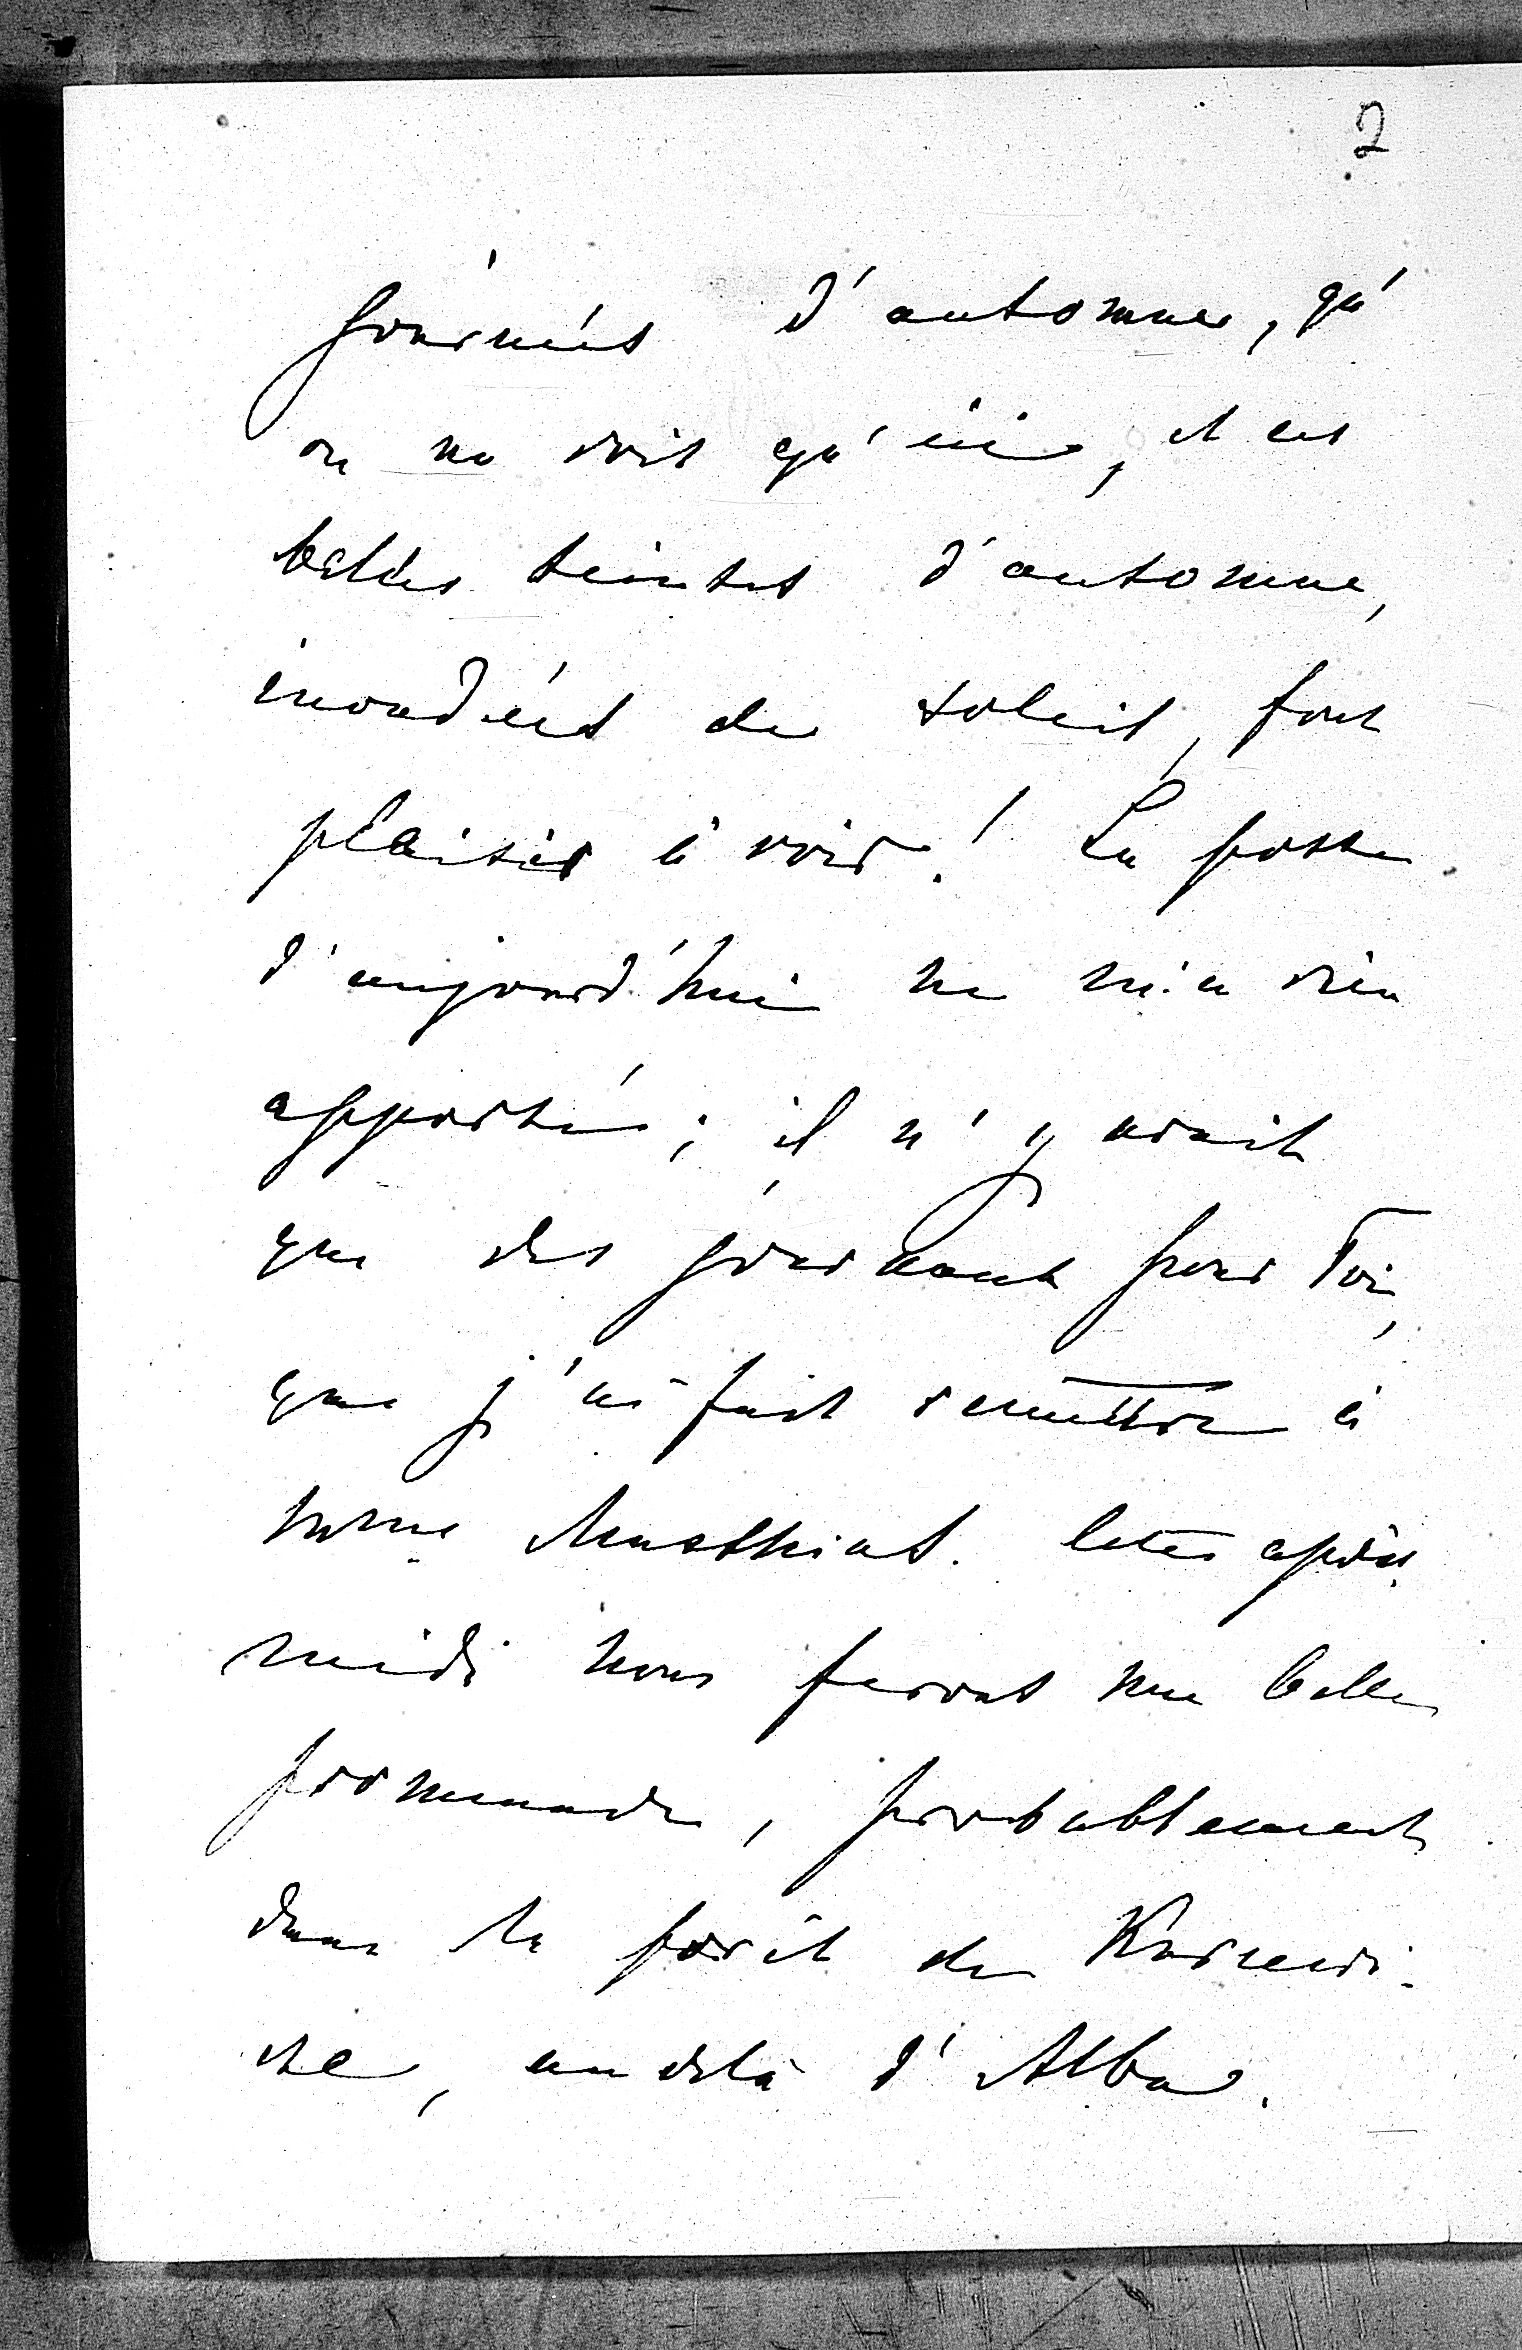 2
journées d'automne, qu'
on ne voit qu'ici, et ces
belles teintes d'automne,
inondées de soleil, font
plaisir à voir! La poste
d'aujourd'hui ne m'a rien
apporté; il n'y avait
que des journaux pour Toi,
que j'ai fait remettre à
Mme Cette après
midi nous ferons une belle
promenade, probablement
dans la forêt de
au delà d'Alba.